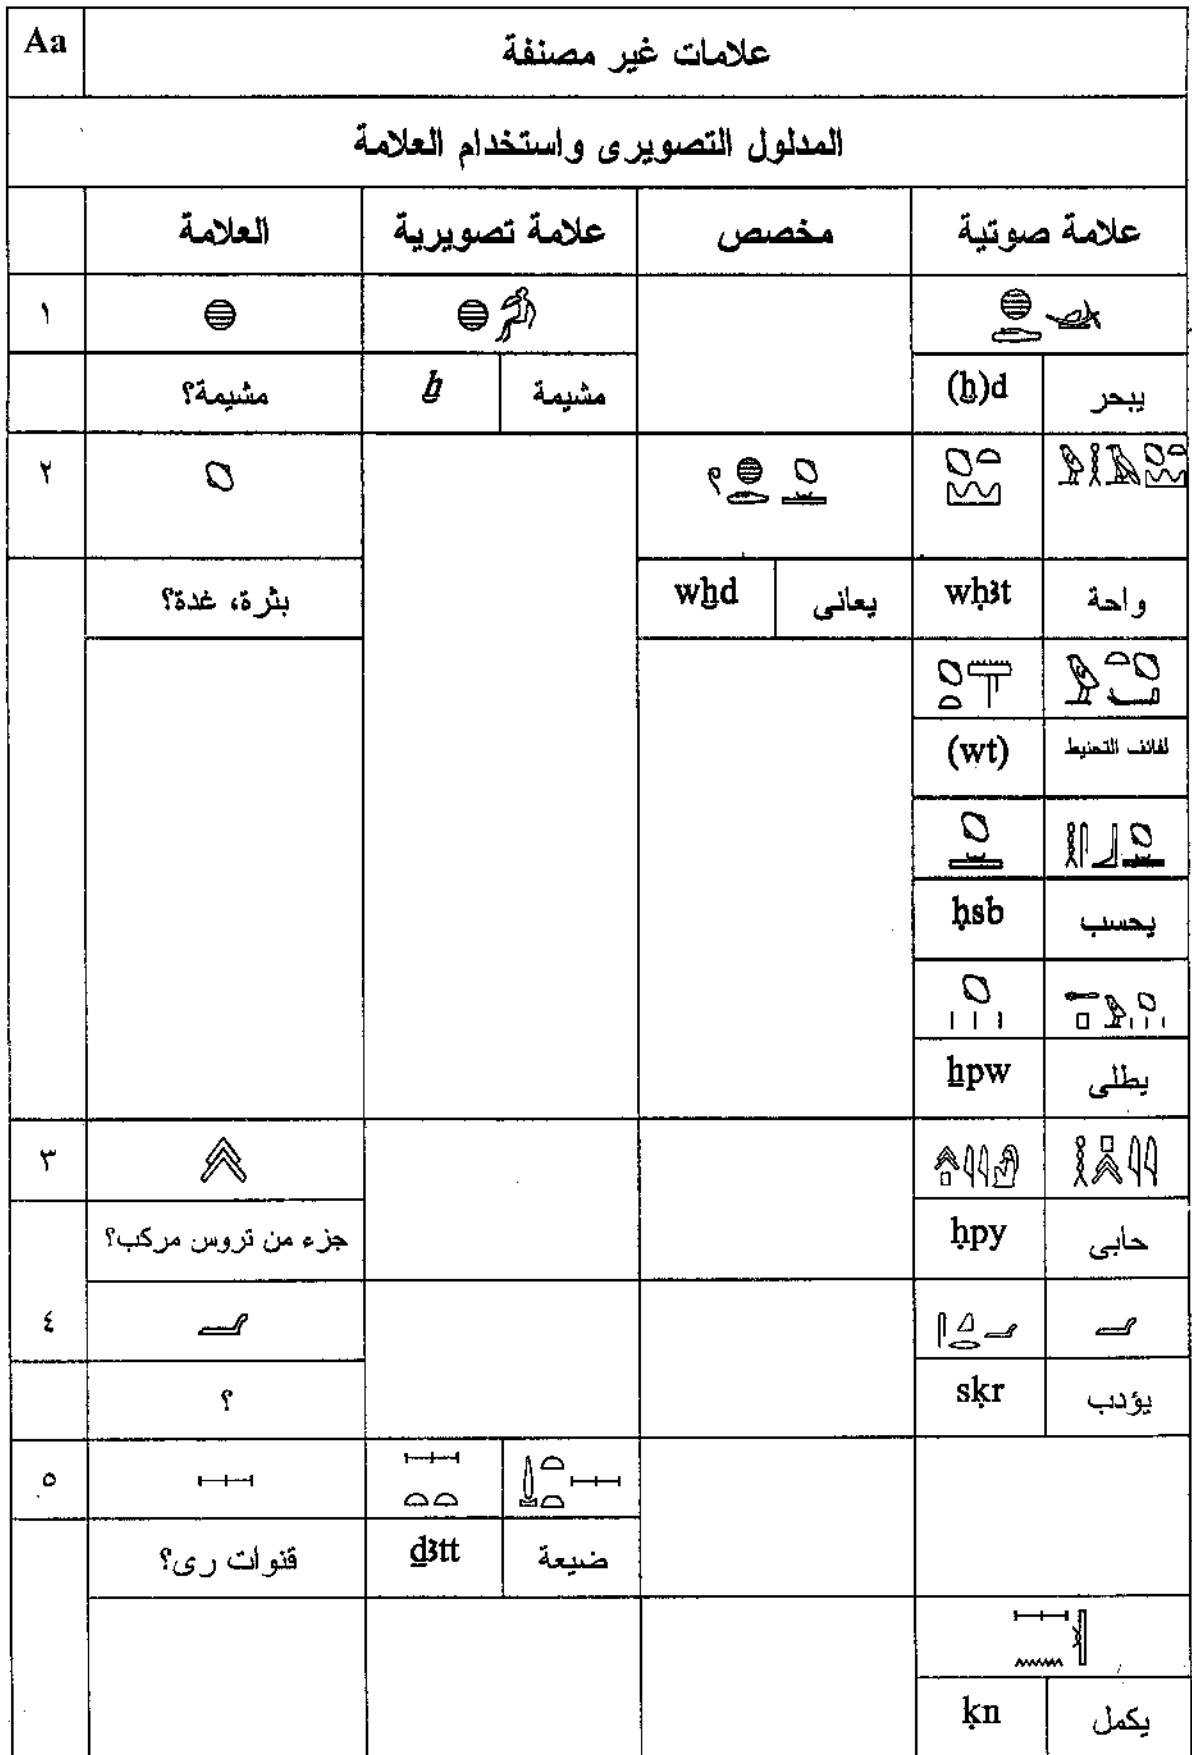 Aa علامات غير مصنفة
المدلول التصويرى واستخدام العلامة
العلامة علامة تصويرية مخصص علامة صوتية
١
مشيمة؟ ẖ مشيمة (ẖ)d يبحر
٢
بثرة، غدة؟ wẖd يعانى wḥꜣt واحة
(wt) لفائف التحنيط
ḥsb يحسب
ẖpw يطلى
٣
جزء من تروس مركب؟ ḥpy حابى
٤
؟ sḳr يؤدب
٥
قنوات رى؟ ḏꜣtt ضيعة
ḳn يكمل